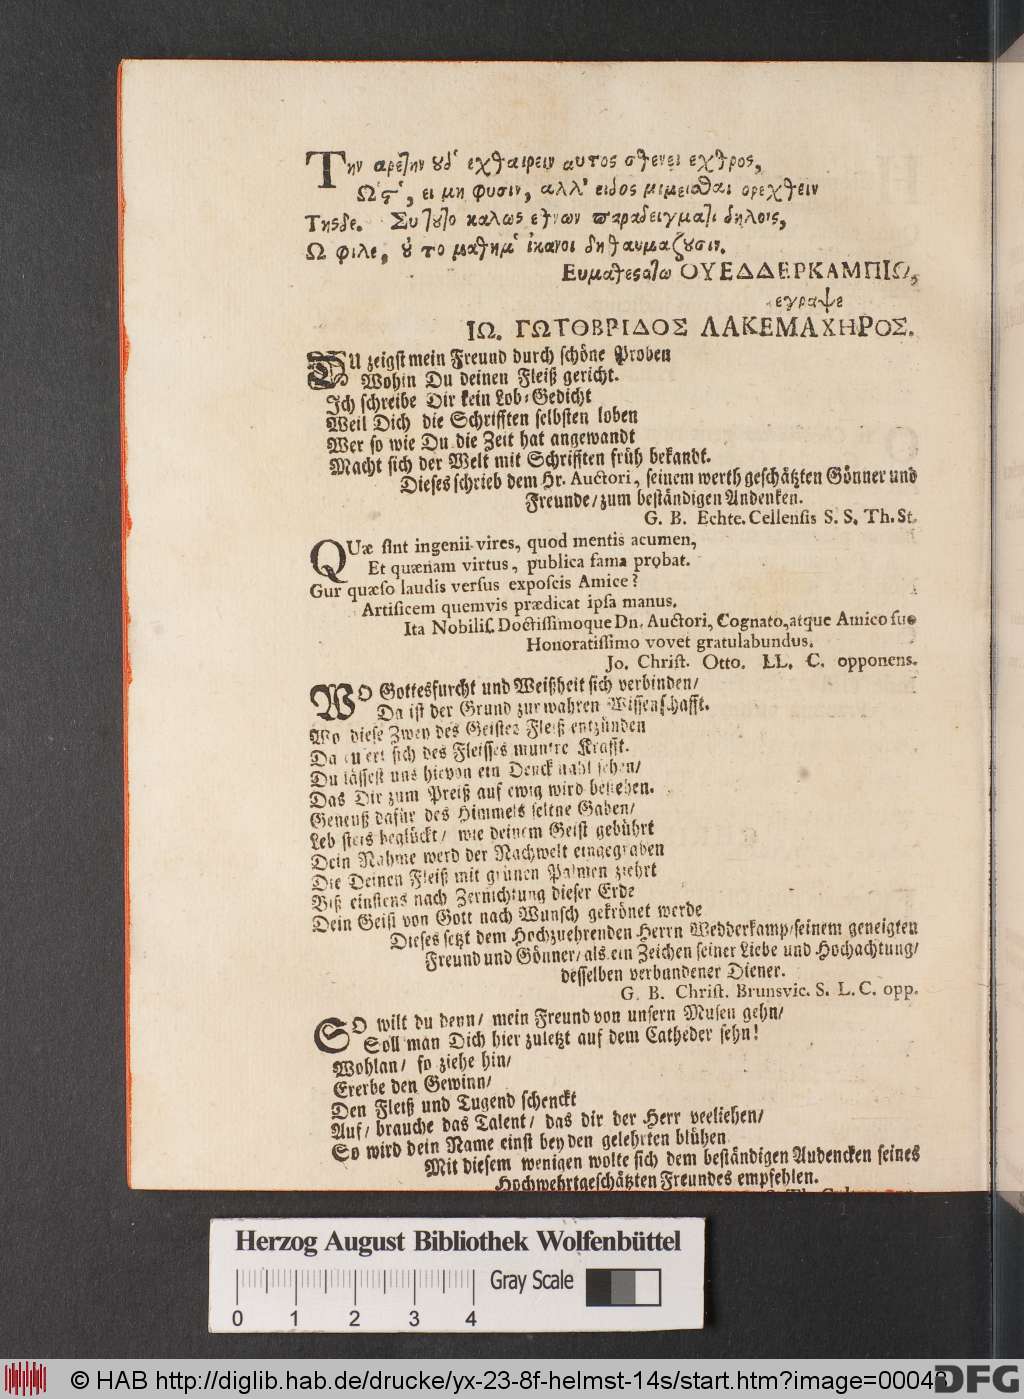 Την αρετην ουδ' εχθαιρειν αυτος σθενει εχθρος,
Ως τ', ει μη φυσιν, αλλ' ειδος μιμεισθαι ορεχθειν
Τησδε. Συ τουτο καλως ετνων παραδειγματι δηλοις,
Ω φιλε, ου το μαθημ' ικανοι δη θαυμαζουσιν.
Ευμαθεστατω ΟΥΕΔΔΕΡΚΑΜΠΙΩ,
εγραψε
ΙΩ. ΓΩΤΟΒΡΙΔΟΣ ΛΑΚΕΜΑΧΗΡΟΣ.
DU zeigst mein Freund durch schöne Proben
Wohin Du deinen Fleiß gericht.
Ich schreibe Dir kein Lob-Gedicht
Weil Dich die Schrifften selbsten loben
Wer so wie Du die Zeit hat angewandt
Macht sich der Welt mit Schrifften früh bekandt.
Dieses schrieb dem Hr. Auctori, seinem werth geschätzten Gönner und
Freunde/ zum beständigen Andenken.
G. B. Echte. Cellensis S. S. Th. St.
QUæ sint ingenii vires, quod mentis acumen,
Et quænam virtus, publica fama probat.
Gur quæso laudis versus exposcis Amice?
Artificem quemvis prædicat ipsa manus.
Ita Nobilis. Doctissimoque Dn. Auctori, Cognato, atque Amico suo
Honoratissimo vovet gratulabundus.
Jo. Christ. Otto. LL. C. opponens.
WO Gottesfurcht und Weißheit sich verbinden/
Da ist der Grund zur wahren Wissenschafft.
Wo diese Zwey des Geistes Fleiß entzünden
Da eusert sich des Fleisses muntre Krafft.
Du lässest uns hievon ein Denckmahl sehen/
Das Dir zum Preiß auf ewig wird bestehen.
Geneuß dafür des Himmels seltne Gaben/
Leb stets beglückt/ wie deinem Geist gebührt
Dein Nahme werd der Nachwelt eingegraben
Die Deinen Fleiß mit grünen Palmen ziehrt
Biß einstens nach Zernichtung dieser Erde
Dein Geist von Gott nach Wunsch gekrönet werde
Dieses setzt dem Hochzuehrenden Herrn Wedderkamp/ seinem geneigten
Freund und Gönner/ als ein Zeichen seiner Liebe und Hochachtung/
desselben verbundener Diener.
G. B. Christ. Brunsvic. S. L. C. opp.
SO wilt du denn/ mein Freund von unsern Musen gehn/
Soll man Dich hier zuletzt auf dem Catheder sehn!
Wohlan/ so ziehe hin/
Ererbe den Gewinn/
Den Fleiß und Tugend schenckt
Auf/ brauche das Talent/ das dir der Herr verliehen/
So wird dein Name einst bey den gelehrten blühen
Mit diesem wenigen wolte sich dem beständigen Andencken seines
Hochwehrtgeschätzten Freundes empfehlen.
Herzog August Bibliothek Wolfenbüttel
Gray Scale
0 1 2 3 4
© HAB http://diglib.hab.de/drucke/yx-23-8f-helmst-14s/start.htm?image=00048
DFG